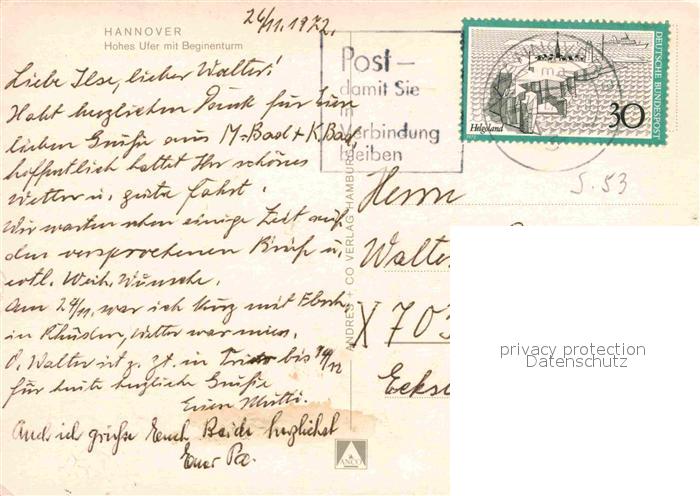 HANNOVER
Hohes Ufer mit Beginenturm
26/11.1972.
Liebe Ilse, lieber Walter!
Habt herzlichen Dank für Eure
lieben Grüße aus M.-Bad + K. Bad,
hoffentlich hattet Ihr schönes
Wetter u. gute Fahrt.
Wir warten schon einige Zeit auf
den versprochenen Brief u.
evtl. Weih. Wünsche.
Am 24/11. war ich kurz mit
in Rhüden, Wetter war mies.
O. Walter ist z. Zt. in bis 14/12
für heute herzliche Grüße
Eure Mutti.
Auch ich grüße Euch Beide herzlichst
Euer Pa.
ANDRES + CO VERLAG HAMBURG
ANCO
Post –
damit Sie
in
Verbindung
bleiben
DEUTSCHE BUNDESPOST
Helgoland
30
S. 53
Herrn
Walter
X 703
Ecks
privacy protection
Datenschutz